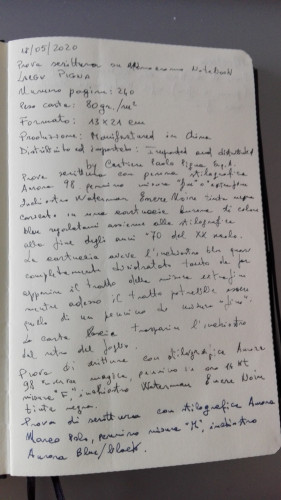 18/05/2020
Prova scrittura su Notebook
PIGNA
Numero pagine: 240
Peso carta: 80 gr./m²
Formato: 13x21 cm
Produzione: Manifactured in China
Distribuito ed importato: Imported and distributed
by Cartiere Paolo Pigna S.p.A.
Prova scrittura con penna stilografica
Aurora 98 pennino misura "fine" o
Inchiostro Waterman Encre Noire tinta nera
caricato in una cartuccia Aurora di colore
blu regalatami assieme alla stilografica
alla fine degli anni '70 del XX secolo.
La cartuccia aveva l'inchiostro blu quasi
completamente disidratato tanto da far
apparire il tratto della misura extrafine
mentre adesso il tratto potrebbe essere
quello di un pennino di misura "fine".
La carta lascia trasparire l'inchiostro
del retro del foglio.
Prova di scrittura con stilografica Aurora
98 pennino in oro 14 Kt
misura "F", inchiostro Waterman Encre Noire
tinta negra.
Prova di scrittura con stilografica Aurora
Marco Polo, pennino misura "M", inchiostro
Aurora Blue/black.